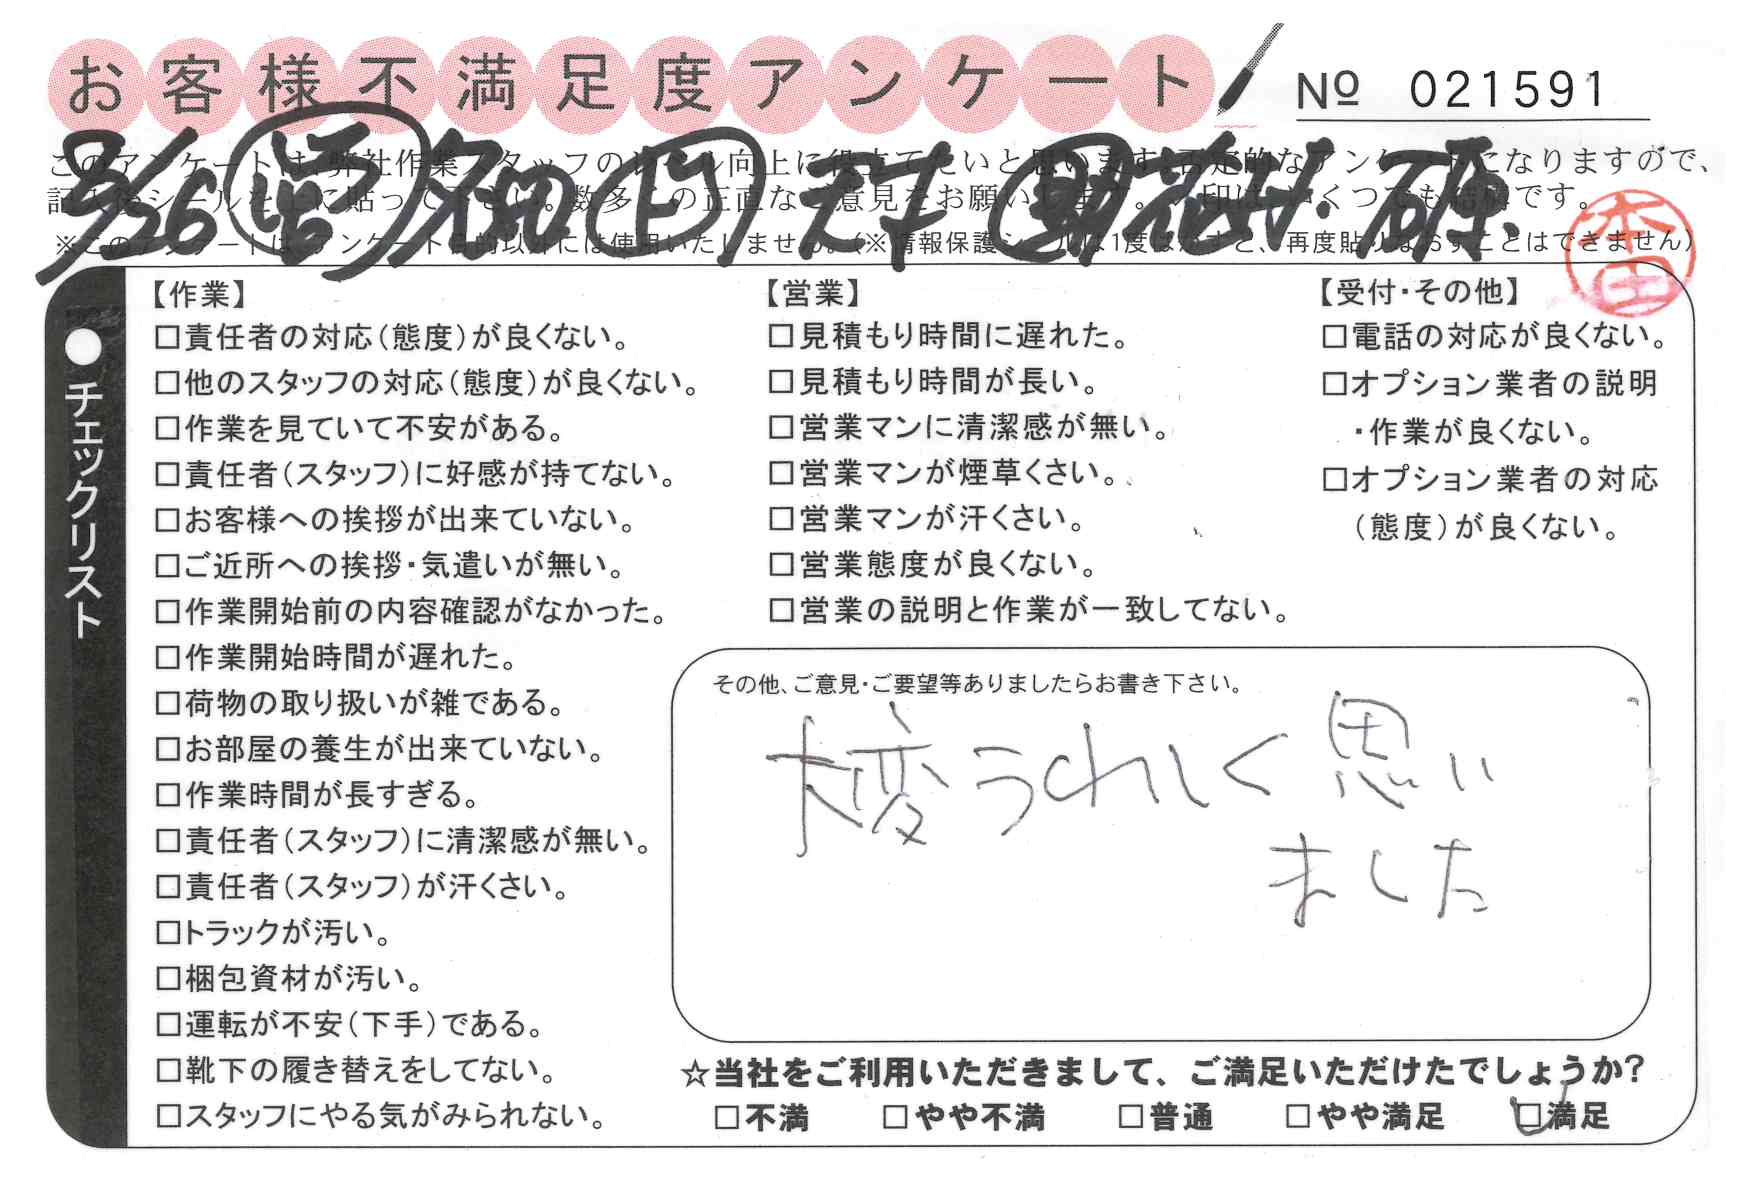 お客様不満足度アンケート
Nº 021591
このアンケートは、弊社作業スタッフのレベル向上に役立てたいと思います。否定的なアンケートになりますので、
記入後シールを上に貼って下さい。数多くの正直なご意見をお願いします。
※このアンケートは、アンケート目的以外には使用いたしません。(※情報保護シールは1度はがすと、再度貼りなおすことはできません)
本田
●チェックリスト
【作業】
□責任者の対応(態度)が良くない。
□他のスタッフの対応(態度)が良くない。
□作業を見ていて不安がある。
□責任者(スタッフ)に好感が持てない。
□お客様への挨拶が出来ていない。
□ご近所への挨拶・気遣いが無い。
□作業開始前の内容確認がなかった。
□作業開始時間が遅れた。
□荷物の取り扱いが雑である。
□お部屋の養生が出来ていない。
□作業時間が長すぎる。
□責任者(スタッフ)に清潔感が無い。
□責任者(スタッフ)が汗くさい。
□トラックが汚い。
□梱包資材が汚い。
□運転が不安(下手)である。
□靴下の履き替えをしてない。
□スタッフにやる気がみられない。
【営業】
□見積もり時間に遅れた。
□見積もり時間が長い。
□営業マンに清潔感が無い。
□営業マンが煙草くさい。
□営業マンが汗くさい。
□営業態度が良くない。
□営業の説明と作業が一致してない。
【受付・その他】
□電話の対応が良くない。
□オプション業者の説明
・作業が良くない。
□オプション業者の対応
(態度)が良くない。
その他、ご意見・ご要望等ありましたらお書き下さい。
大変うれしく思い
ました
☆当社をご利用いただきまして、ご満足いただけたでしょうか?
□不満 □やや不満 □普通 □やや満足 □満足